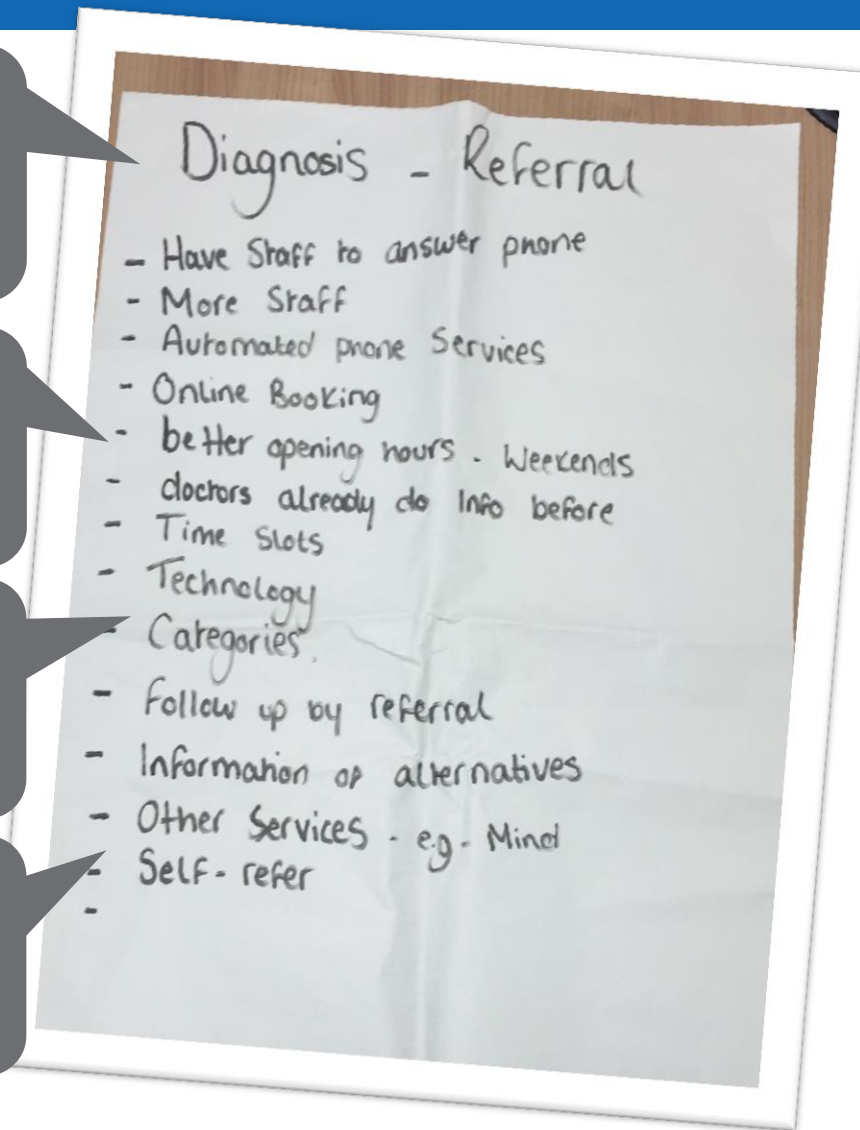 Diagnosis - Referral
- Have Staff to answer phone
- More Staff
- Automated phone Services
- Online Booking
- better opening hours - Weekends
- doctors already do Info before
- Time Slots
- Technology
- Categories.
- Follow up by referral
- Information of alternatives
- Other Services - e.g - Mind
- Self - refer
-